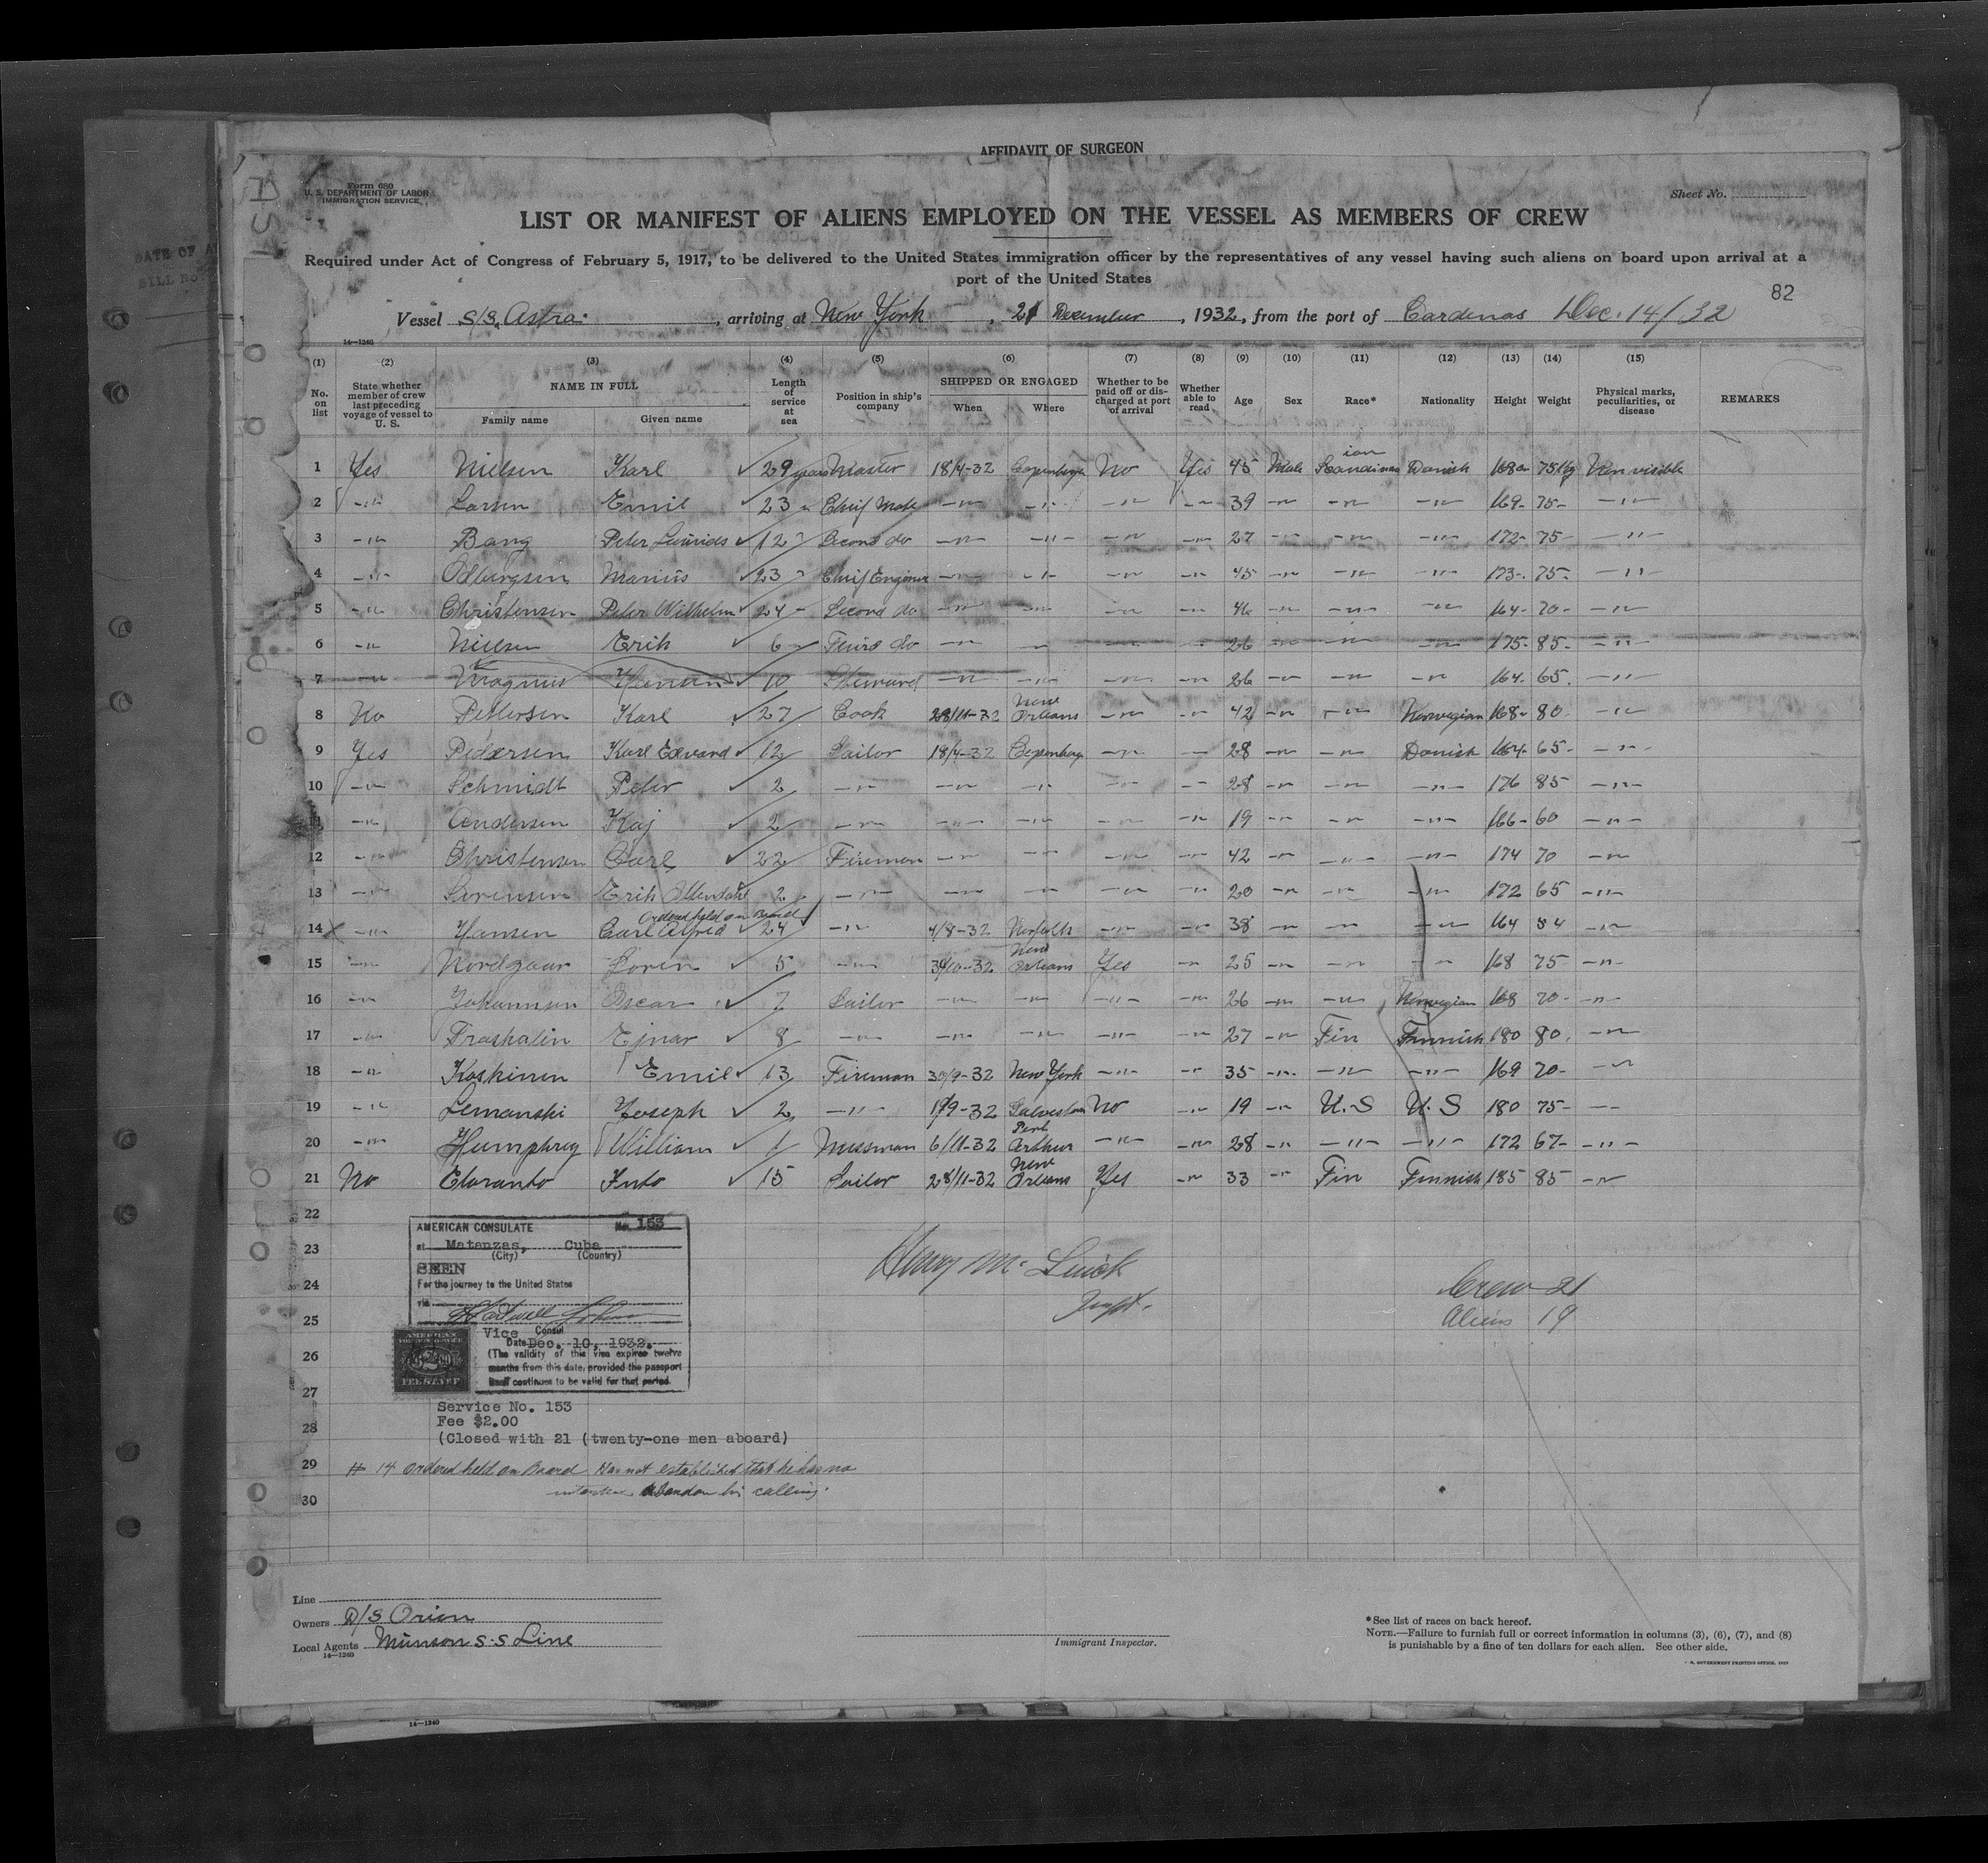 AFFIDAVIT OF SURGEON
Form 680
U. S. DEPARTMENT OF LABOR
IMMIGRATION SERVICE
Sheet No.
LIST OR MANIFEST OF ALIENS EMPLOYED ON THE VESSEL AS MEMBERS OF CREW
Required under Act of Congress of February 5, 1917, to be delivered to the United States immigration officer by the representatives of any vessel having such aliens on board upon arrival at a
port of the United States
82
Vessel S/S. Astra. , arriving at New York , 21 December , 1932, from the port of Cardenas Dec. 14/32
14—1240
(1) (2) (3) (4) (5) (6) (7) (8) (9) (10) (11) (12) (13) (14) (15)
No. on list State whether member of crew last preceding voyage of vessel to U. S. NAME IN FULL Family name Given name Length of service at sea Position in ship's company SHIPPED OR ENGAGED When Where Whether to be paid off or discharged at port of arrival Whether able to read Age Sex Race* Nationality Height Weight Physical marks, peculiarities, or disease REMARKS
1 Yes Nielsen Karl 29 years Master 18/4-32 Copenhagen No Yes 45 Male Scandinavian Danish 168 cm 75 kg Non visible
2 -"- Larsen Emil 23 Chief Mate -"- -"- -"- -"- 39 -"- -"- -"- 169- 75- -"-
3 -"- Bang Peter Laurids 12 Second do -"- -"- -"- -"- 27 -"- -"- -"- 172- 75- -"-
4 -"- Odbergsen Marius 23 Chief Engineer -"- -"- -"- -"- 45 -"- -"- -"- 173- 75- -"-
5 -"- Christensen Peter Wilhelm 24 Second do -"- -"- -"- -"- 46 -"- -"- -"- 164- 70- -"-
6 -"- Nielsen Erik 6 do -"- -"- -"- -"- 26 -"- -"- -"- 175- 85- -"-
7 -"- Magnus 10 Steward -"- -"- -"- -"- 26 -"- -"- -"- 164- 65. -"-
8 No Pettersen Karl 27 Cook 28/11-32 New Orleans -"- -"- 42 -"- -"- Norwegian 168- 80 -"-
9 Yes Pedersen Karl Edvard 12 Sailor 18/4-32 Copenhag -"- -"- 28 -"- -"- Danish 164- 65- -"-
10 -"- Schmidt Peter 2 -"- -"- -"- -"- -"- 28 -"- -"- -"- 176 85 -"-
11 -"- Andersen Kaj 2 -"- -"- -"- -"- -"- 19 -"- -"- -"- 166- 60 -"-
12 -"- Christensen Carl 22 Fireman -"- -"- -"- -"- 42 -"- -"- -"- 174 70 -"-
13 -"- Sorensen Erik 2 -"- -"- -"- -"- -"- 20 -"- -"- -"- 172 65 -"-
Ordered held on Board
14 X -"- Hansen Carl Alfred 24 -"- 4/8-32 Norfolk -"- -"- 38 -"- -"- -"- 164 84 -"-
15 -"- Nordgaar Soren 5 -"- 31/10-32 New Orleans Yes -"- 25 -"- -"- -"- 168 75- -"-
16 -"- Johannsen Oscar 7 Sailor -"- -"- -"- -"- 26 -"- -"- Norwegian 168 70- -"-
17 -"- Frashalin Ejnar 8 -"- -"- -"- -"- -"- 27 -"- Fin Finnish 180 80. -"-
18 -"- Koskinen Emil 13 Fireman 30/9-32 New York -"- -"- 35 -"- -"- -"- 169 70- -"-
19 -"- Lemanski Joseph 2 -"- 19/9-32 Galveston No -"- 19 -"- U.S U.S 180 75- -"-
20 -"- Humphrey William 1 Messman 6/11-32 Port Arthur -"- -"- 28 -"- -"- -"- 172 67- -"-
21 No Eloranto Into 15 Sailor 28/11-32 New Orleans Yes -"- 33 -"- Fin Finnish 185 85- -"-
22
23
24
25
26
27
28
29
30
AMERICAN CONSULATE No. 153
at Matanzas, Cuba
(City) (Country)
SEEN
For the journey to the United States
via
Vice Consul
Date Dec. 10, 1932.
(The validity of this visa expires twelve
months from this date, provided the passport
itself continues to be valid for that period.
AMERICAN
FEE STAMP
Service No. 153
Fee $2.00
(Closed with 21 (twenty-one men aboard)
# 14 ordered held on Board Has not established that he has no
intention abandon his calling.
Crew 21
Aliens 19
Line
Owners D/S Orion
Local Agents Munson S.S Line
14—1240
Immigrant Inspector.
*See list of races on back hereof.
NOTE.—Failure to furnish full or correct information in columns (3), (6), (7), and (8)
is punishable by a fine of ten dollars for each alien. See other side.
14—1240